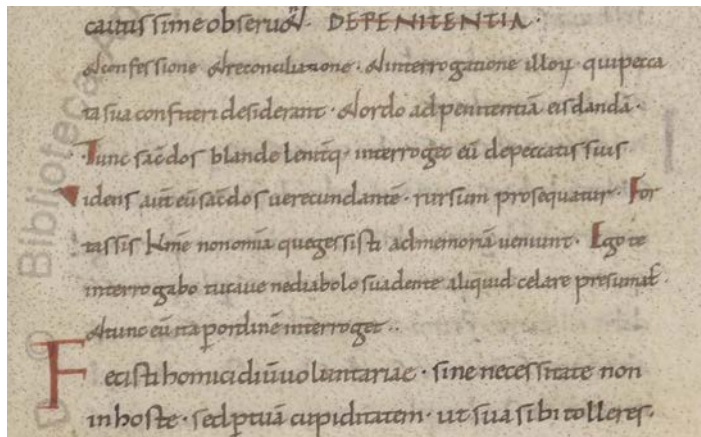 cautissime obseruet. DE PENITENTIA.
et confessione et reconciliatione. et interrogatione illoꝝ qui pecca
ta sua confiteri desiderant. et ordo ad penitentiā eis dandā.
Tunc sac̄dos blande leniterq; interroget eū de peccatis suis
Videns aūt eū sac̄dos uerecundantē. rursum prosequatur. For
tassis kmē non om̄ia que gessisti ad memoriā ueniunt. Ego te
interrogabo tu caue ne diabolo suadente aliquid celare presumas.
et tunc eū ita ꝑ ordinē interroget..
Fecisti homicidiū uoluntariae. sine necessitate non
in hoste. sed ꝓpt tuā cupiditatem. ut sua sibi tolleres.
Biblioteca
©